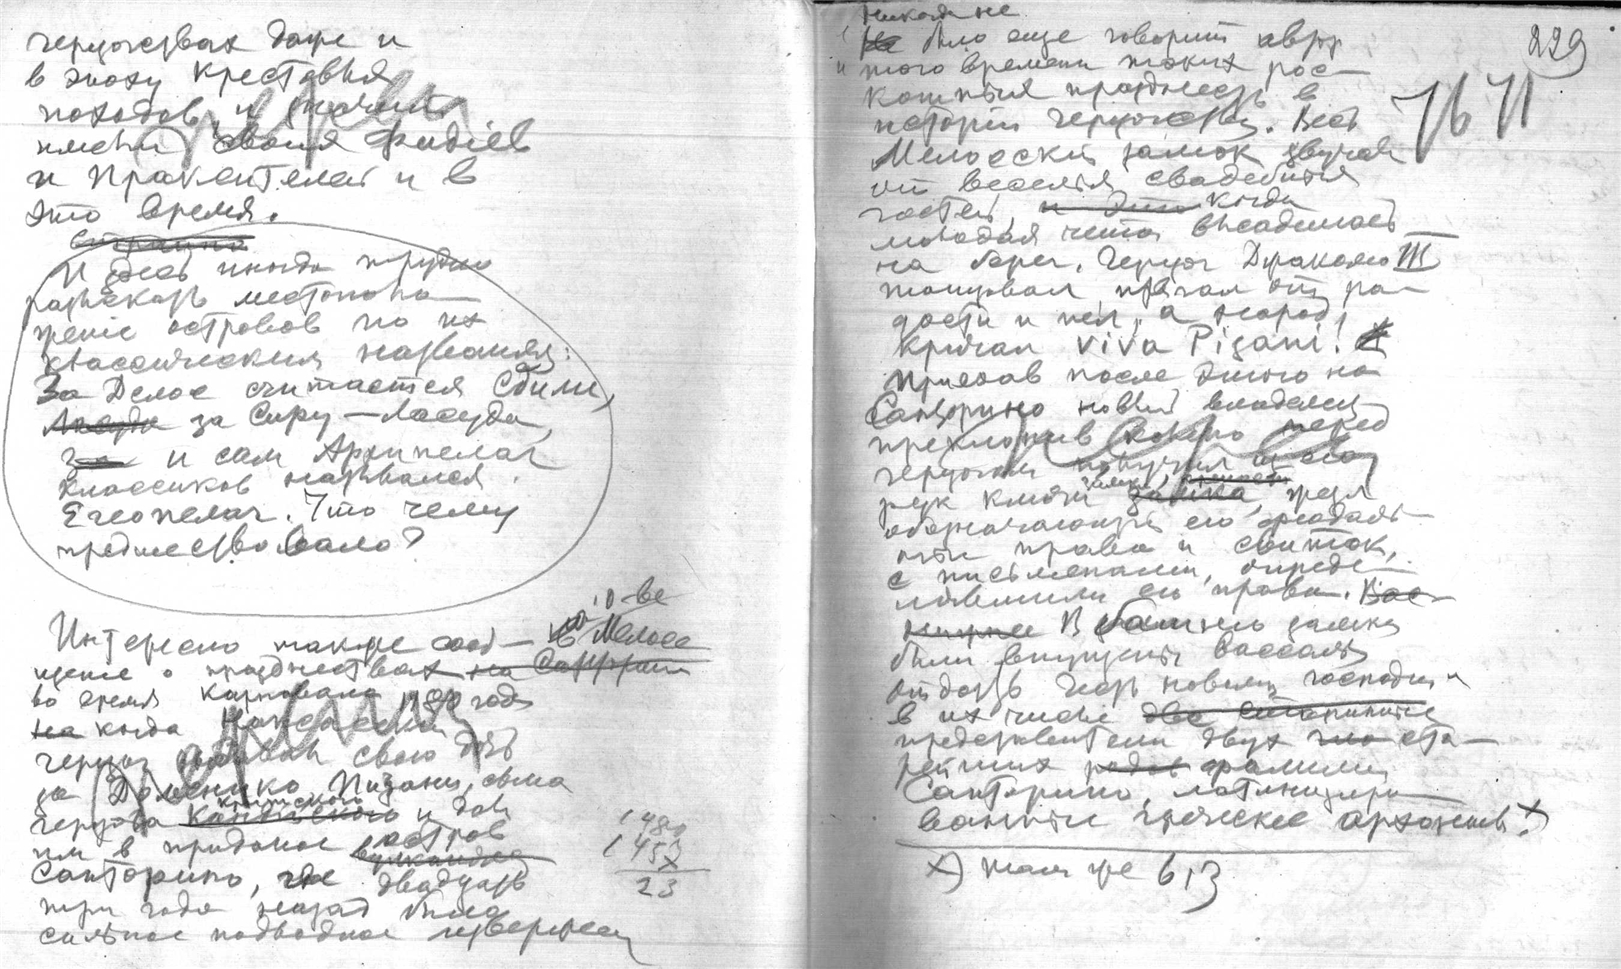 герцогствах даже и
в эпоху Крестовых
походов, и
имели своих Фидиев
и Праксителей и в
это время.
странно
И здесь иногда трудно
разыскать местополо-
жение островов по их
классическим названиям:
За Делос считается Сдили,
за Сиру — Ласуда,
за и сам Архипелаг
классиков назывался
Егеопелаг. Что чему
предшествовало?
Интересно также сооб-
щение о празднествах на о-ве Мелосе
во время Карнавала 1480 года
на когда Наксосский
герцог выдавал свою дочь
за Доменико Пизани, сына
герцога Критского и дал
им в приданое остров
Санторино, где двадцать
три года назад было
сильное подводное извержен
1480
1457
23
229
76 71
никогда не
было еще говорит автор
того времени таких рос-
кошных празднеств в
истории герцогства. Весь
Мелосский замок звучал
от веселья свадебных
гостей, и когда
молодая чета высадилась
на берег. Герцог Джакомо III
танцовал, прыгал от ра-
дости и пел, а народ
кричал viva Pizani!
Приехав после этого на
Санторино новый владелец
преклонив колено перед
герцогом получил из его
рук ключи замка, жезл
обозначающий его феодаль-
ные права и свиток,
с письменами, опреде-
лявшими его права. Вос-
В башню замка
были впущены вассалы
отдать честь новому господину
в их числе
представители двух ста-
рейших родов фамилии
Санторино, латинизиро-
ванные греческие архонты х)
х) там же 613